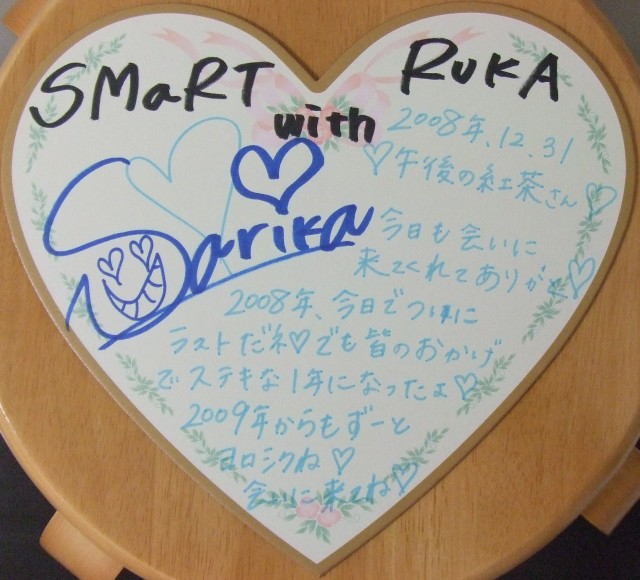 SMaRT with RUKA
Sarika
2008年.12.31
♡午後の紅茶さん♡
今日も会いに
来てくれてありがと♡
2008年、今日でついに
ラストだネ♡でも皆のおかげ
でステキな1年になったよ♡
2009年からもずーと
ヨロシクね♡
会いに来てね♡